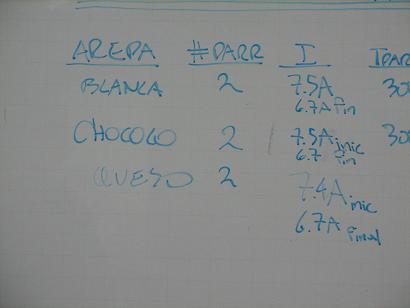 AREPA # PARR I TPAR
BLANCA 2 7.5A 300
6.7A Fin
CHOCOLO 2 7.5A inic 300
6.7 Fin
QUESO 2
7.4A inic
6.7A Final